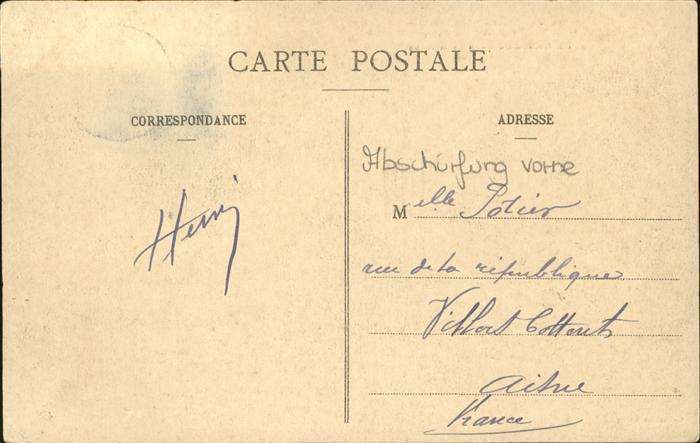 CARTE POSTALE
CORRESPONDANCE
ADRESSE
Abschürfung vorne
Henri
Melle Potier
rue de la république
Villers Cotterets
Aisne
France